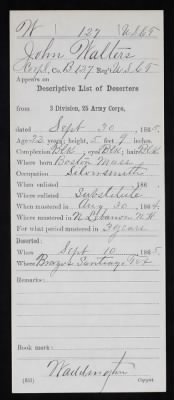 W 127 U.S.C.T.
John Walters
Corpl., Co. B, 127 Reg't U.S.C.T.
Appears on
Descriptive List of Deserters
from 3 Division, 25 Army Corps,
dated Sept 30, 1865.
Age 23 years; height 5 feet 9 inches.
Complexion Blk, eyes Blk, hair Blk
Where born Boston Mass
Occupation Silversmith
When enlisted , 186 .
Where enlisted Substitute
When mustered in Aug 30, 1864.
Where mustered in N. H.
For what period mustered in 3 years
Deserted:
When Sept 10, 1865.
Where Brazos Santiago Tex
Remarks:
Book mark:
Waddington
(351) Copyist.